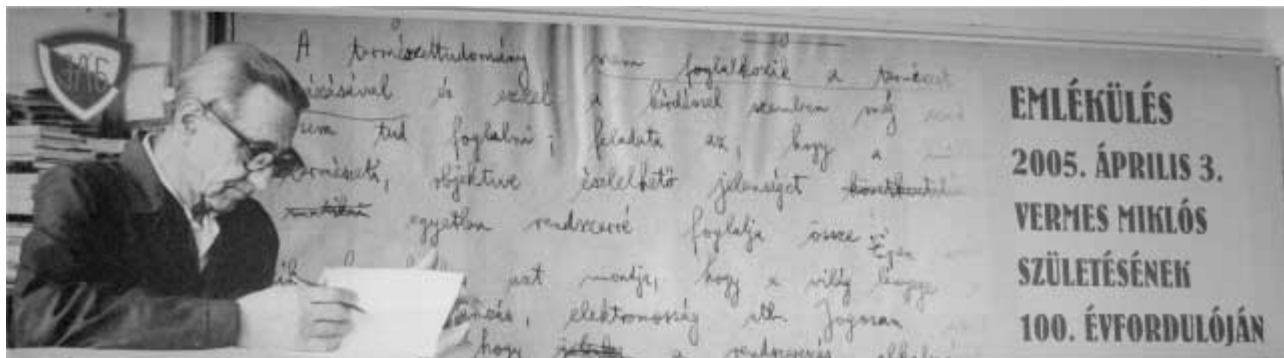 JAG
A természettudomány nem foglalkozik a természet
és ezzel a kérdéssel szemben még
sem tud foglalni; feladata az, hogy a
objektive észlelhető jelenséget
egyetlen rendszerré foglalja össze.
azt mondja, hogy a világ lényege
elektromosság stb. Jogosan
hogy a rendszerezés
EMLÉKÜLÉS
2005. ÁPRILIS 3.
VERMES MIKLÓS
SZÜLETÉSÉNEK
100. ÉVFORDULÓJÁN